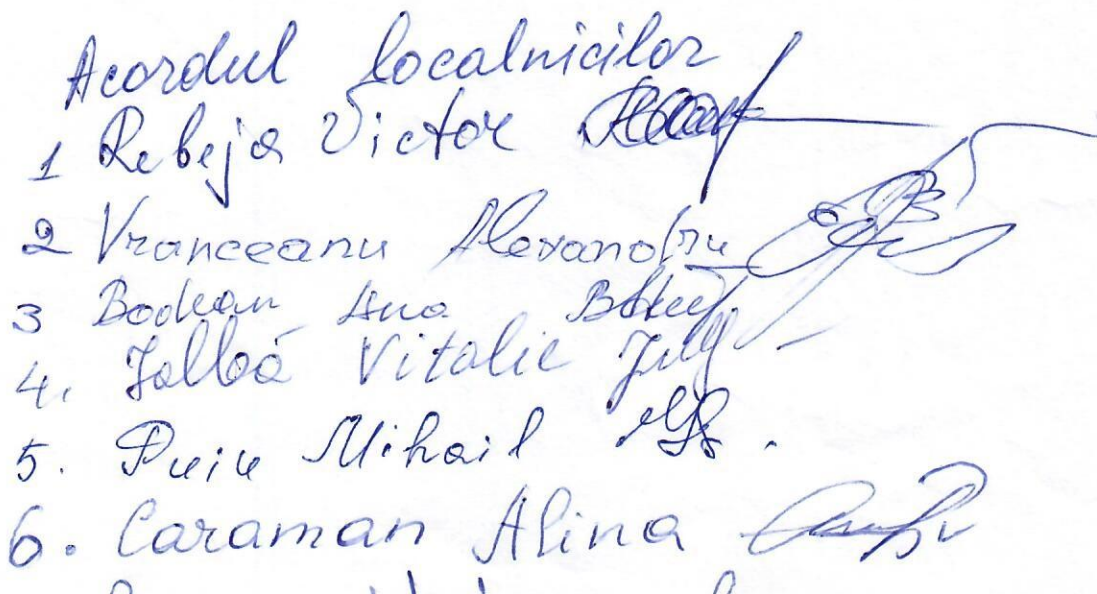 Acordul localnicilor
1 Rebeja Victor
2 Vranceanu Alexandru
3 Bodean Ana
4. Jalbă Vitalie
5. Puiu Mihail
6. Caraman Alina